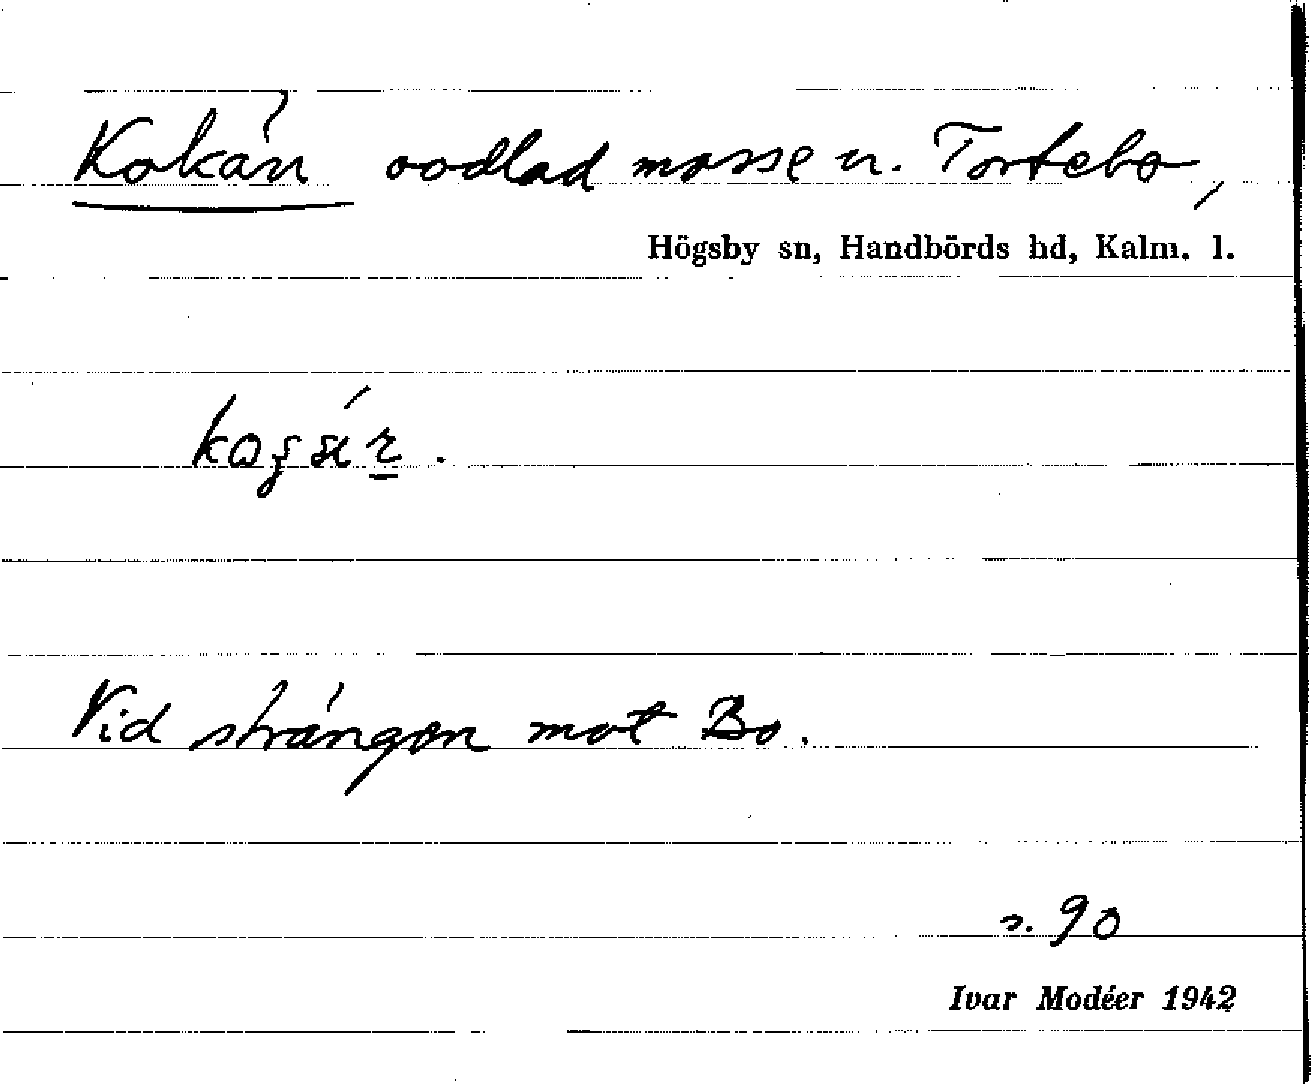 Kokán oodlad mosse n. Tortebo,
Högsby sn, Handbörds hd, Kalm. l.
Vid strängen mot Bo.
s. 90
Ivar Modéer 1942